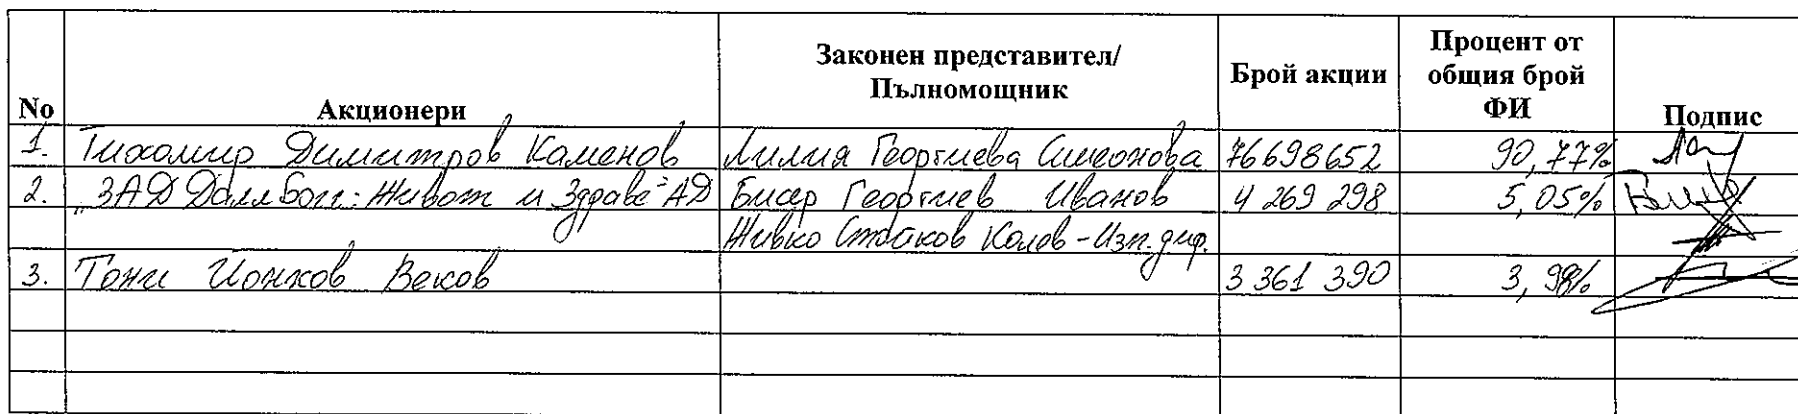 No Акционери Законен представител/ Пълномощник Брой акции Процент от общия брой ФИ Подпис
1. Тихомир Димитров Каменов Лилия Георгиева Симеонова 76698652 90,77%
2. "ЗАД ДаллБогг: Живот и Здраве" АД Бисер Георгиев Иванов 4 269 298 5,05%
Живко Стойков Колев - Изп. дир.
3. Тони Йонков Веков 3 361 390 3,98%